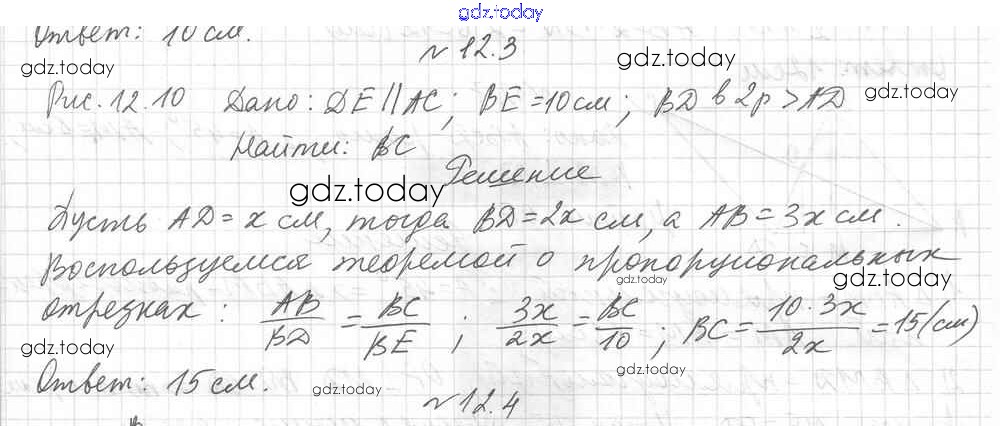 gdz.today
Ответ: 10 см.
№ 12.3
gdz.today gdz.today
Рис. 12.10 Дано: DE || AC; BE = 10 см; BD в 2р > AD gdz.today
Найти: BC
Решение
gdz.today
Пусть AD = x см, тогда BD = 2x см, а AB = 3x см.
Воспользуемся теоремой о пропорциональных
gdz.today gdz.today
отрезках: AB/BD = BC/BE ; 3x/2x = BC/10 ; BC = 10·3x/2x = 15 (см)
gdz.today gdz.today
Ответ: 15 см. gdz.today
№ 12.4